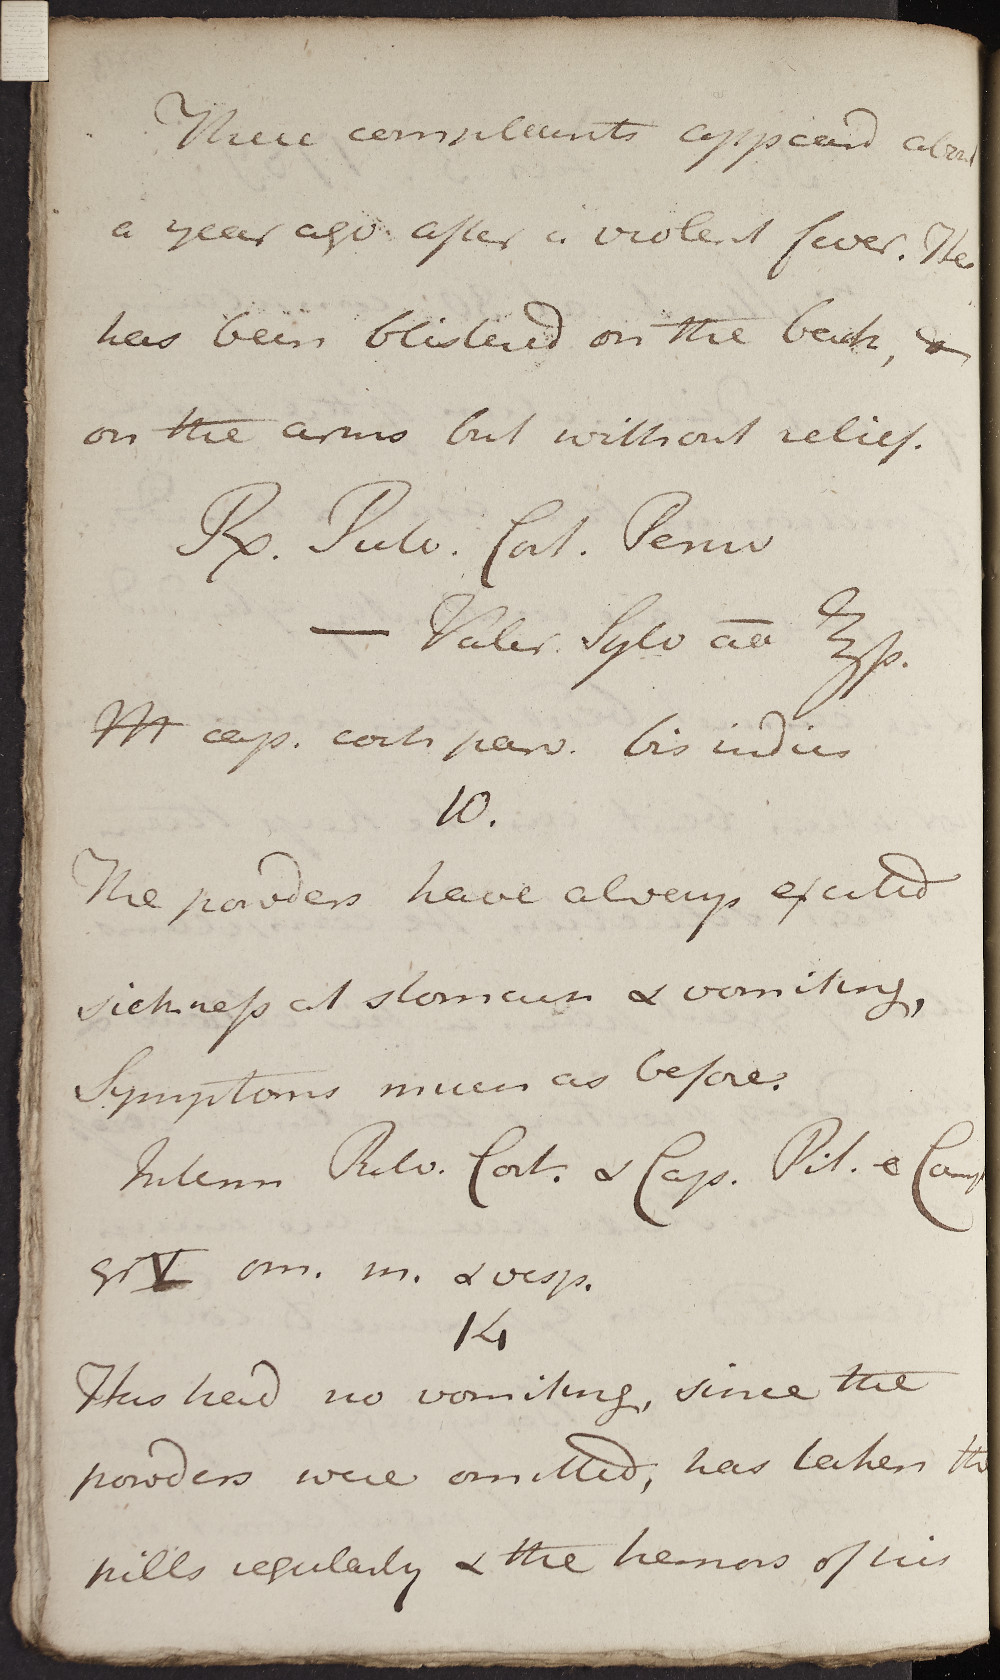 These complaints appeard about
a year ago after a violent fever. He
has been blisterd on the back, &
on the arms but without relief.
Rx. Pulv. Cort. Peruv
— Valer. Sylv āā ℥ß.
M cap. coch parv. bis indies
10.
The powders have always excited
sickness at stomach & vomiting,
Symptoms much as before.
Interm Pulv. Cort. & Cap. Pil. e Camp
gr V om. m. & vesp.
14
Has had no vomiting, since the
powders were omitted, has taken the
pills regularly & the tremors of his